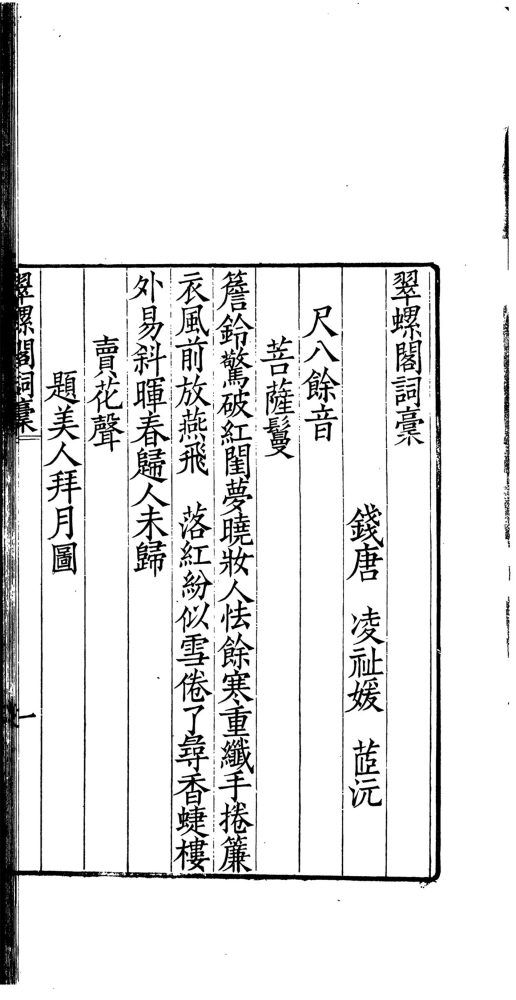 翠螺閣詞稾
錢唐　凌祉媛　茝沅
尺八餘音
菩薩鬘
簷鈴驚破紅閨夢曉妝人怯餘寒重纖手捲簾
衣風前放燕飛　落紅紛似雪倦了尋香蜨樓
外易斜暉春歸人未歸
賣花聲
題美人拜月圖
翠螺閣詞稾
一